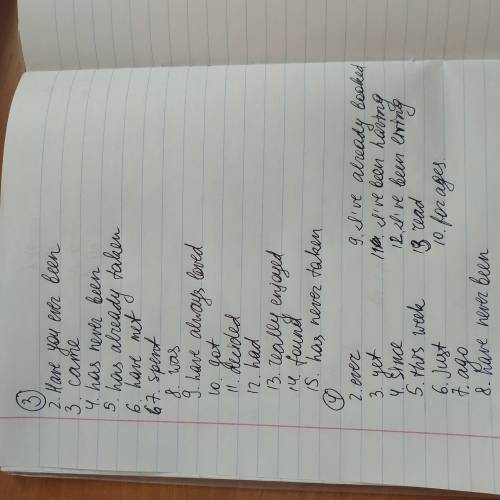 3
2. Have you ever been
3. came
4. has never been
5. has already taken
6. have met
7. spent
8. was
9. have always loved
10. got
11. decided
12. had
13. really enjoyed
14. found
15. has never taken
4
2. ever
3. yet
4. since
5. this week
6. Just
7. ago
8. have never been
9. I've already booked
11. I've been having
12. I've been living
13 read
10. for ages